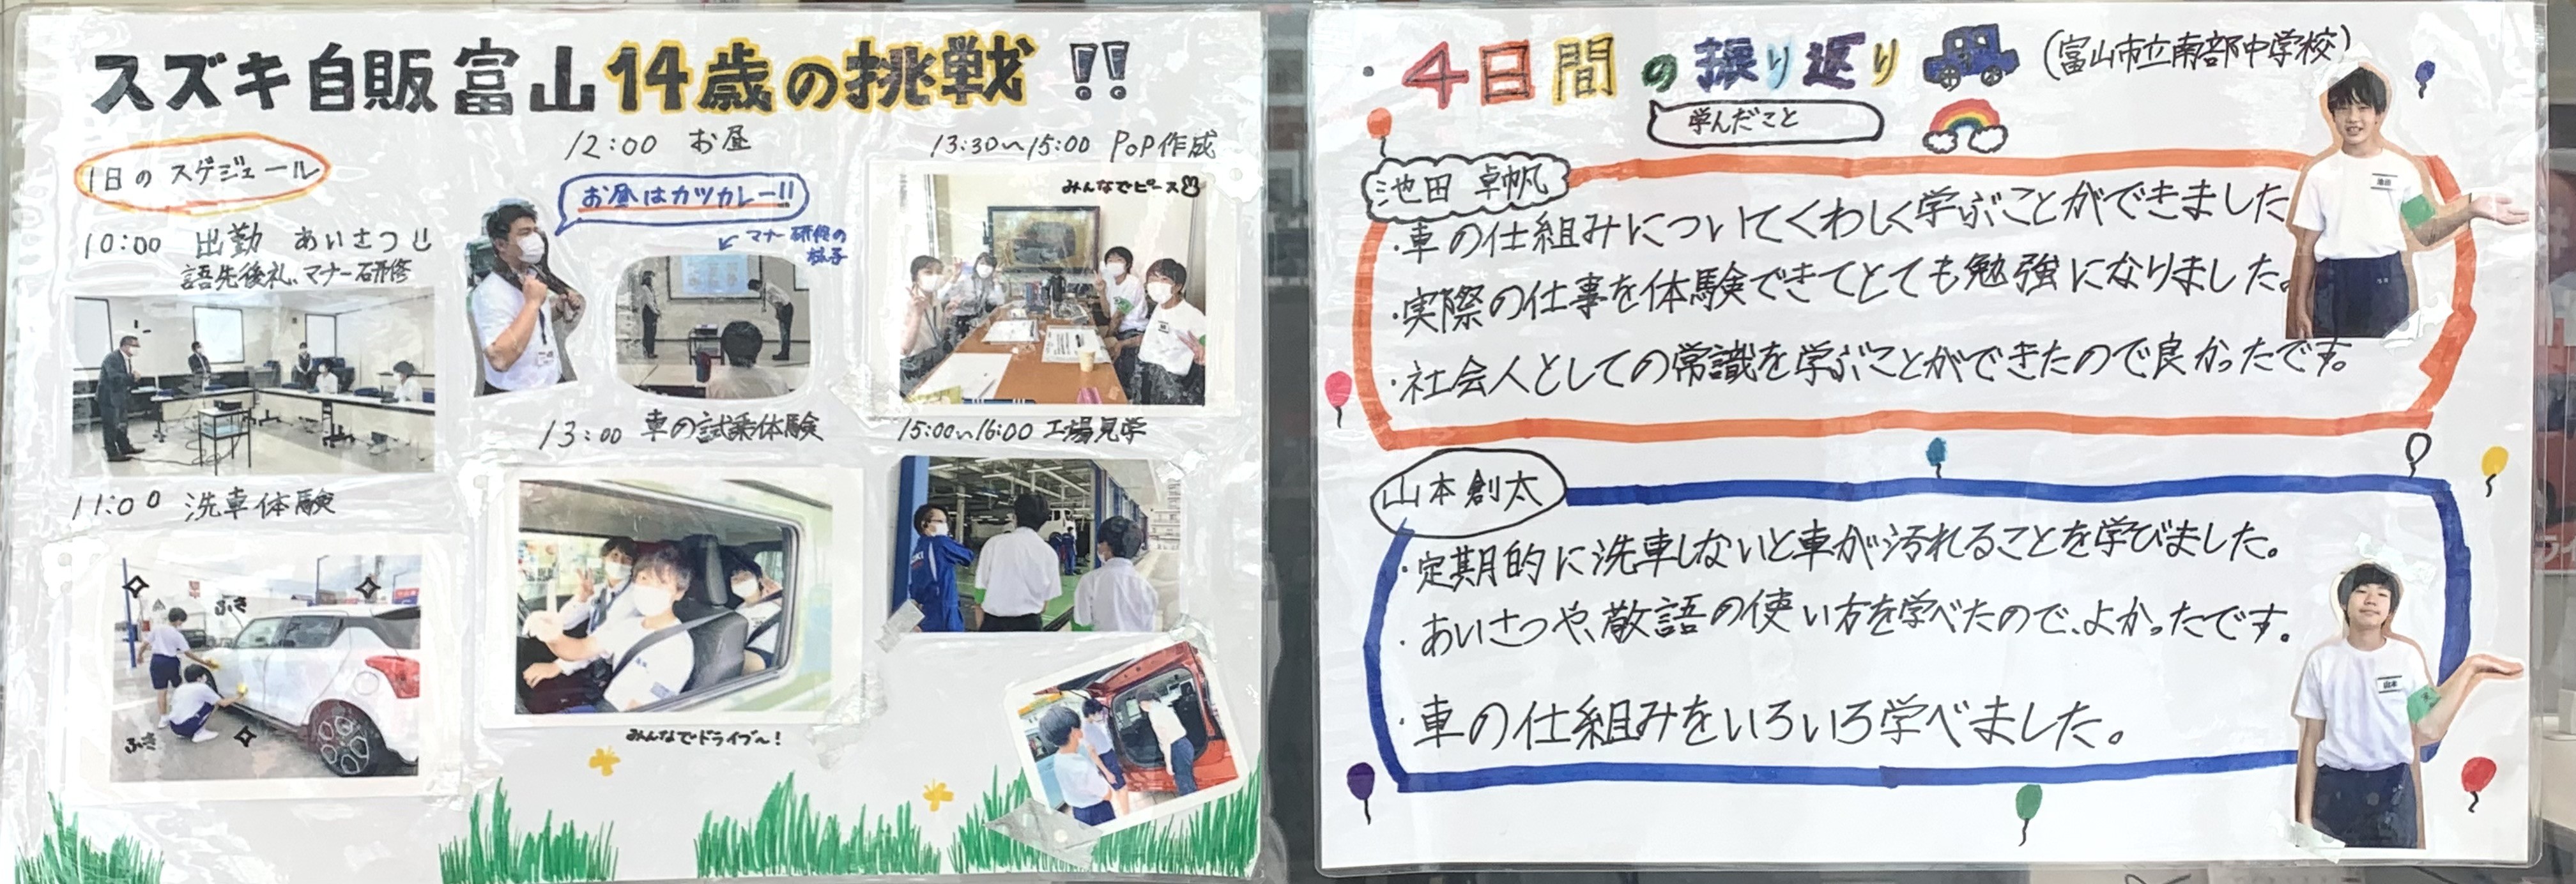 スズキ自販富山14歳の挑戦!!
1日のスケジュール
10:00 出勤 あいさつ
語先後礼、マナー研修
11:00 洗車体験
ふき
ふき
12:00 お昼
お昼はカツカレー!!
マナー研修の
様子
13:00 車の試乗体験
みんなでドライブ〜!
13:30〜15:00 PoP作成
みんなでピース
15:00〜16:00 工場見学
・4日間の振り返り (富山市立南部中学校)
学んだこと
池田 卓帆
・車の仕組みについてくわしく学ぶことができました
・実際の仕事を体験できてとても勉強になりました。
・社会人としての常識を学ぶことができたので良かったです。
池田
山本創太
・定期的に洗車しないと車が汚れることを学びました。
・あいさつや、敬語の使い方を学べたので、よかったです。
・車の仕組みをいろいろ学べました。
山本